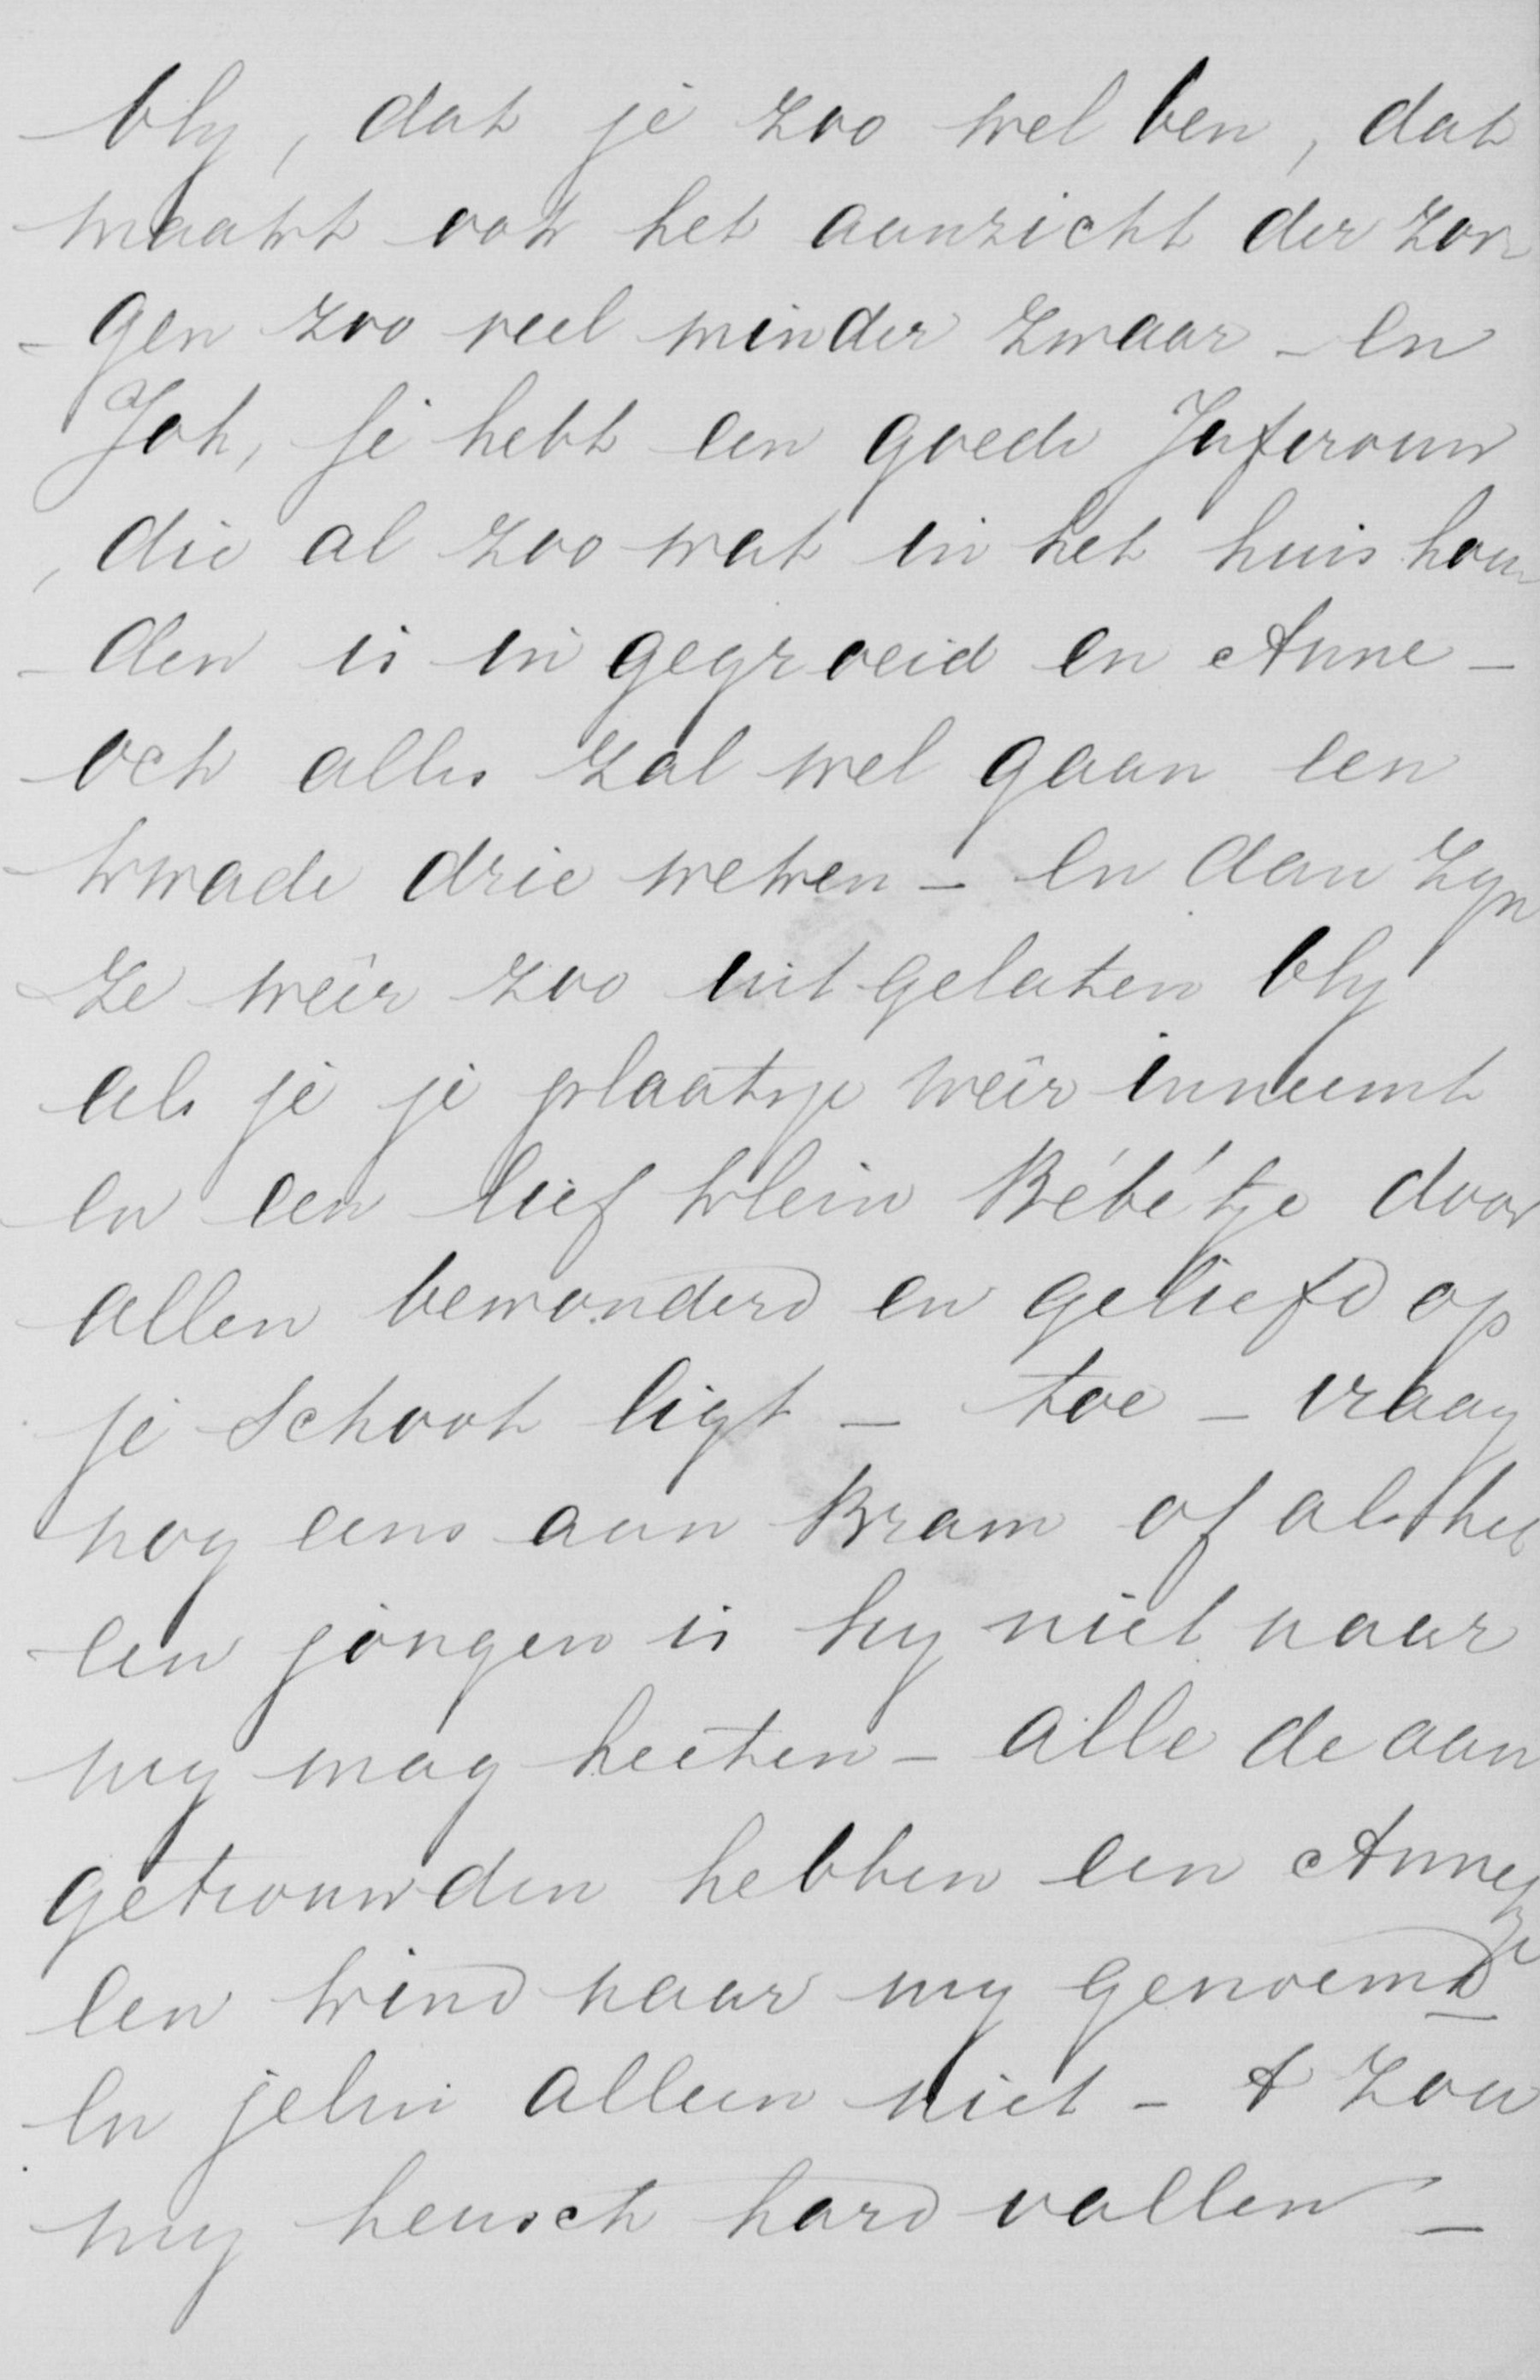 bly, dat je zoo wel ben, dat
maakt ook het aanzicht der zor
- gen zoo veel minder zwaar - en
Joh, je hebt een goede Juffrouw
, die al zoo wat in het huis hou
- den is in gegroeid en Anne -
och alles zal wel gaan een
kwade drie weken - en dan zyn
ze wéér zoo uitgelaten bly
als je je plaatsje wéér inneemt
en een lief klein Bébé'tje door
allen bewonderd en geliefd op
je schoot ligt - toe - vraag
nog eens aan Bram of als het
een jongen is hy niet naar
my mag heeten - alle de aan
getrouwden hebben een Annetje
een kind naar my genoemd
en jelui alleen niet - t zou
my heusch hard vallen -